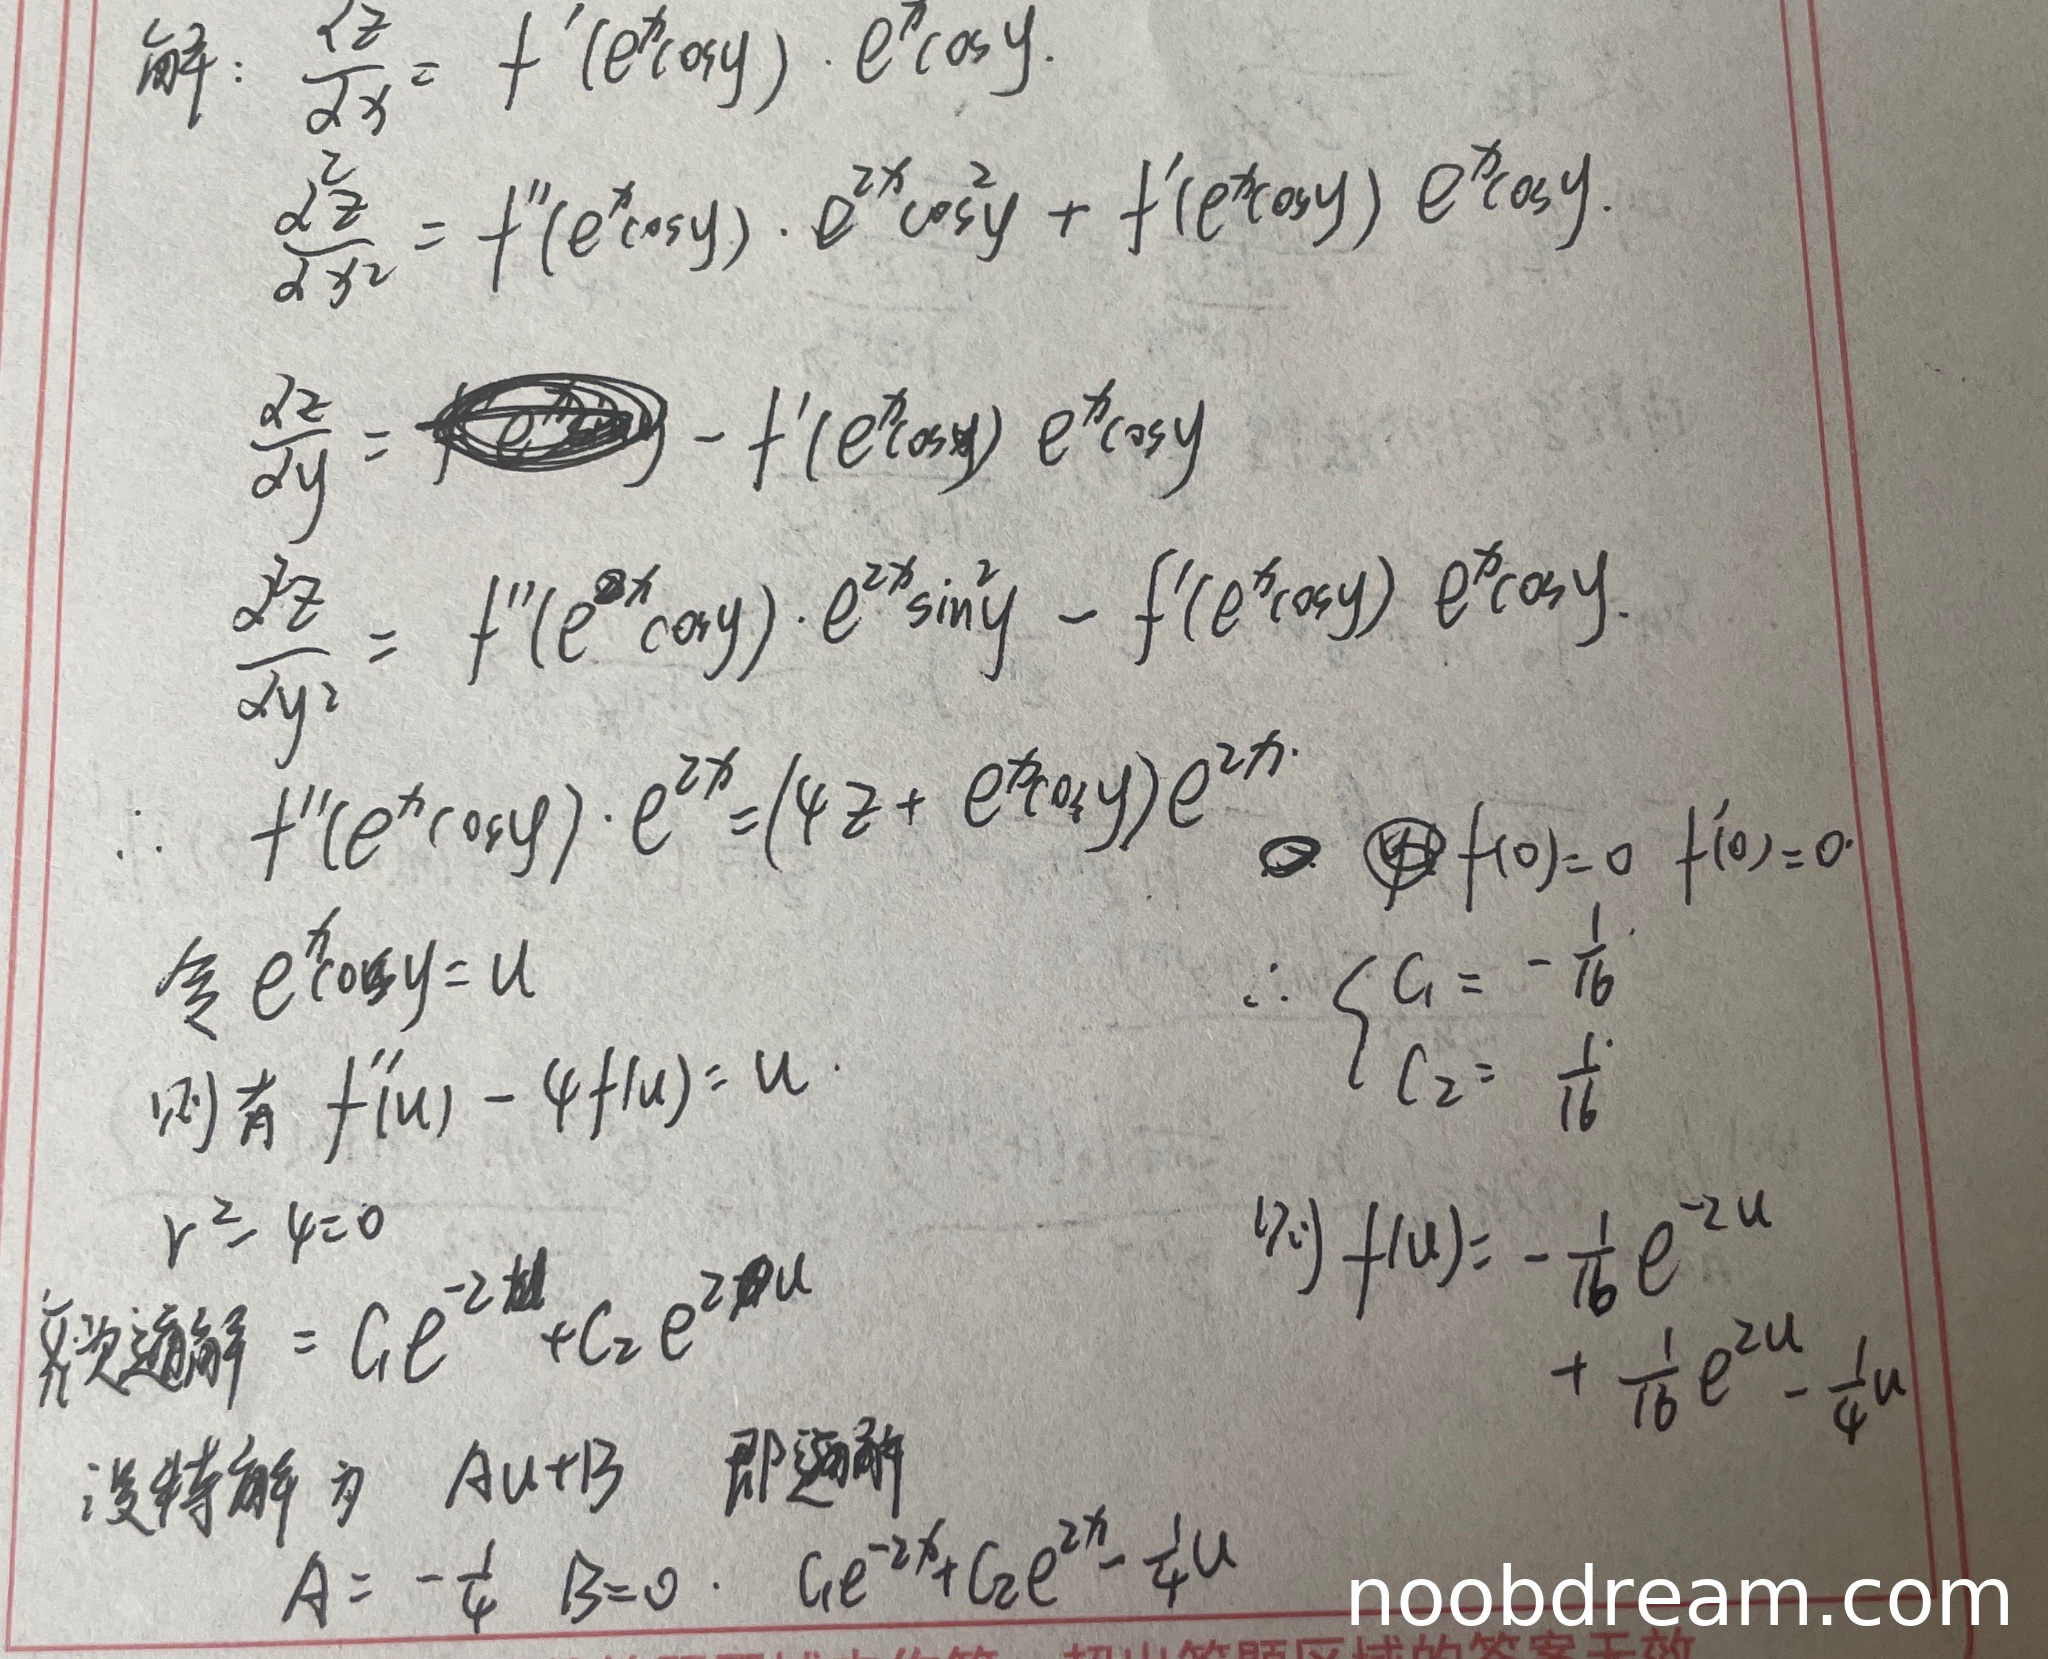 解: ∂z/∂x = f'(e^x cosy) · e^x cosy.
∂²z/∂x² = f''(e^x cosy) · e^{2x} cos²y + f'(e^x cosy) e^x cosy.
∂z/∂y = - f'(e^x cosy) e^x cosy
∂²z/∂y² = f''(e^x cosy) · e^{2x} sin²y - f'(e^x cosy) e^x cosy.
∴ f''(e^x cosy) · e^{2x} = (4z + e^x cosy) e^{2x}.
令 e^x cosy = u
则有 f''(u) - 4f(u) = u.
r² - 4 = 0
齐次通解 = C₁e^{-2u} + C₂e^{2u}
设特解为 Au+B 即通解
A = -1/4 B = 0. C₁e^{-2x} + C₂e^{2x} - 1/4 u
f(0)=0 f'(0)=0.
∴ { C₁ = -1/16
C₂ = 1/16
则 f(u) = -1/16 e^{-2u}
+ 1/16 e^{2u} - 1/4 u
noobdream.com